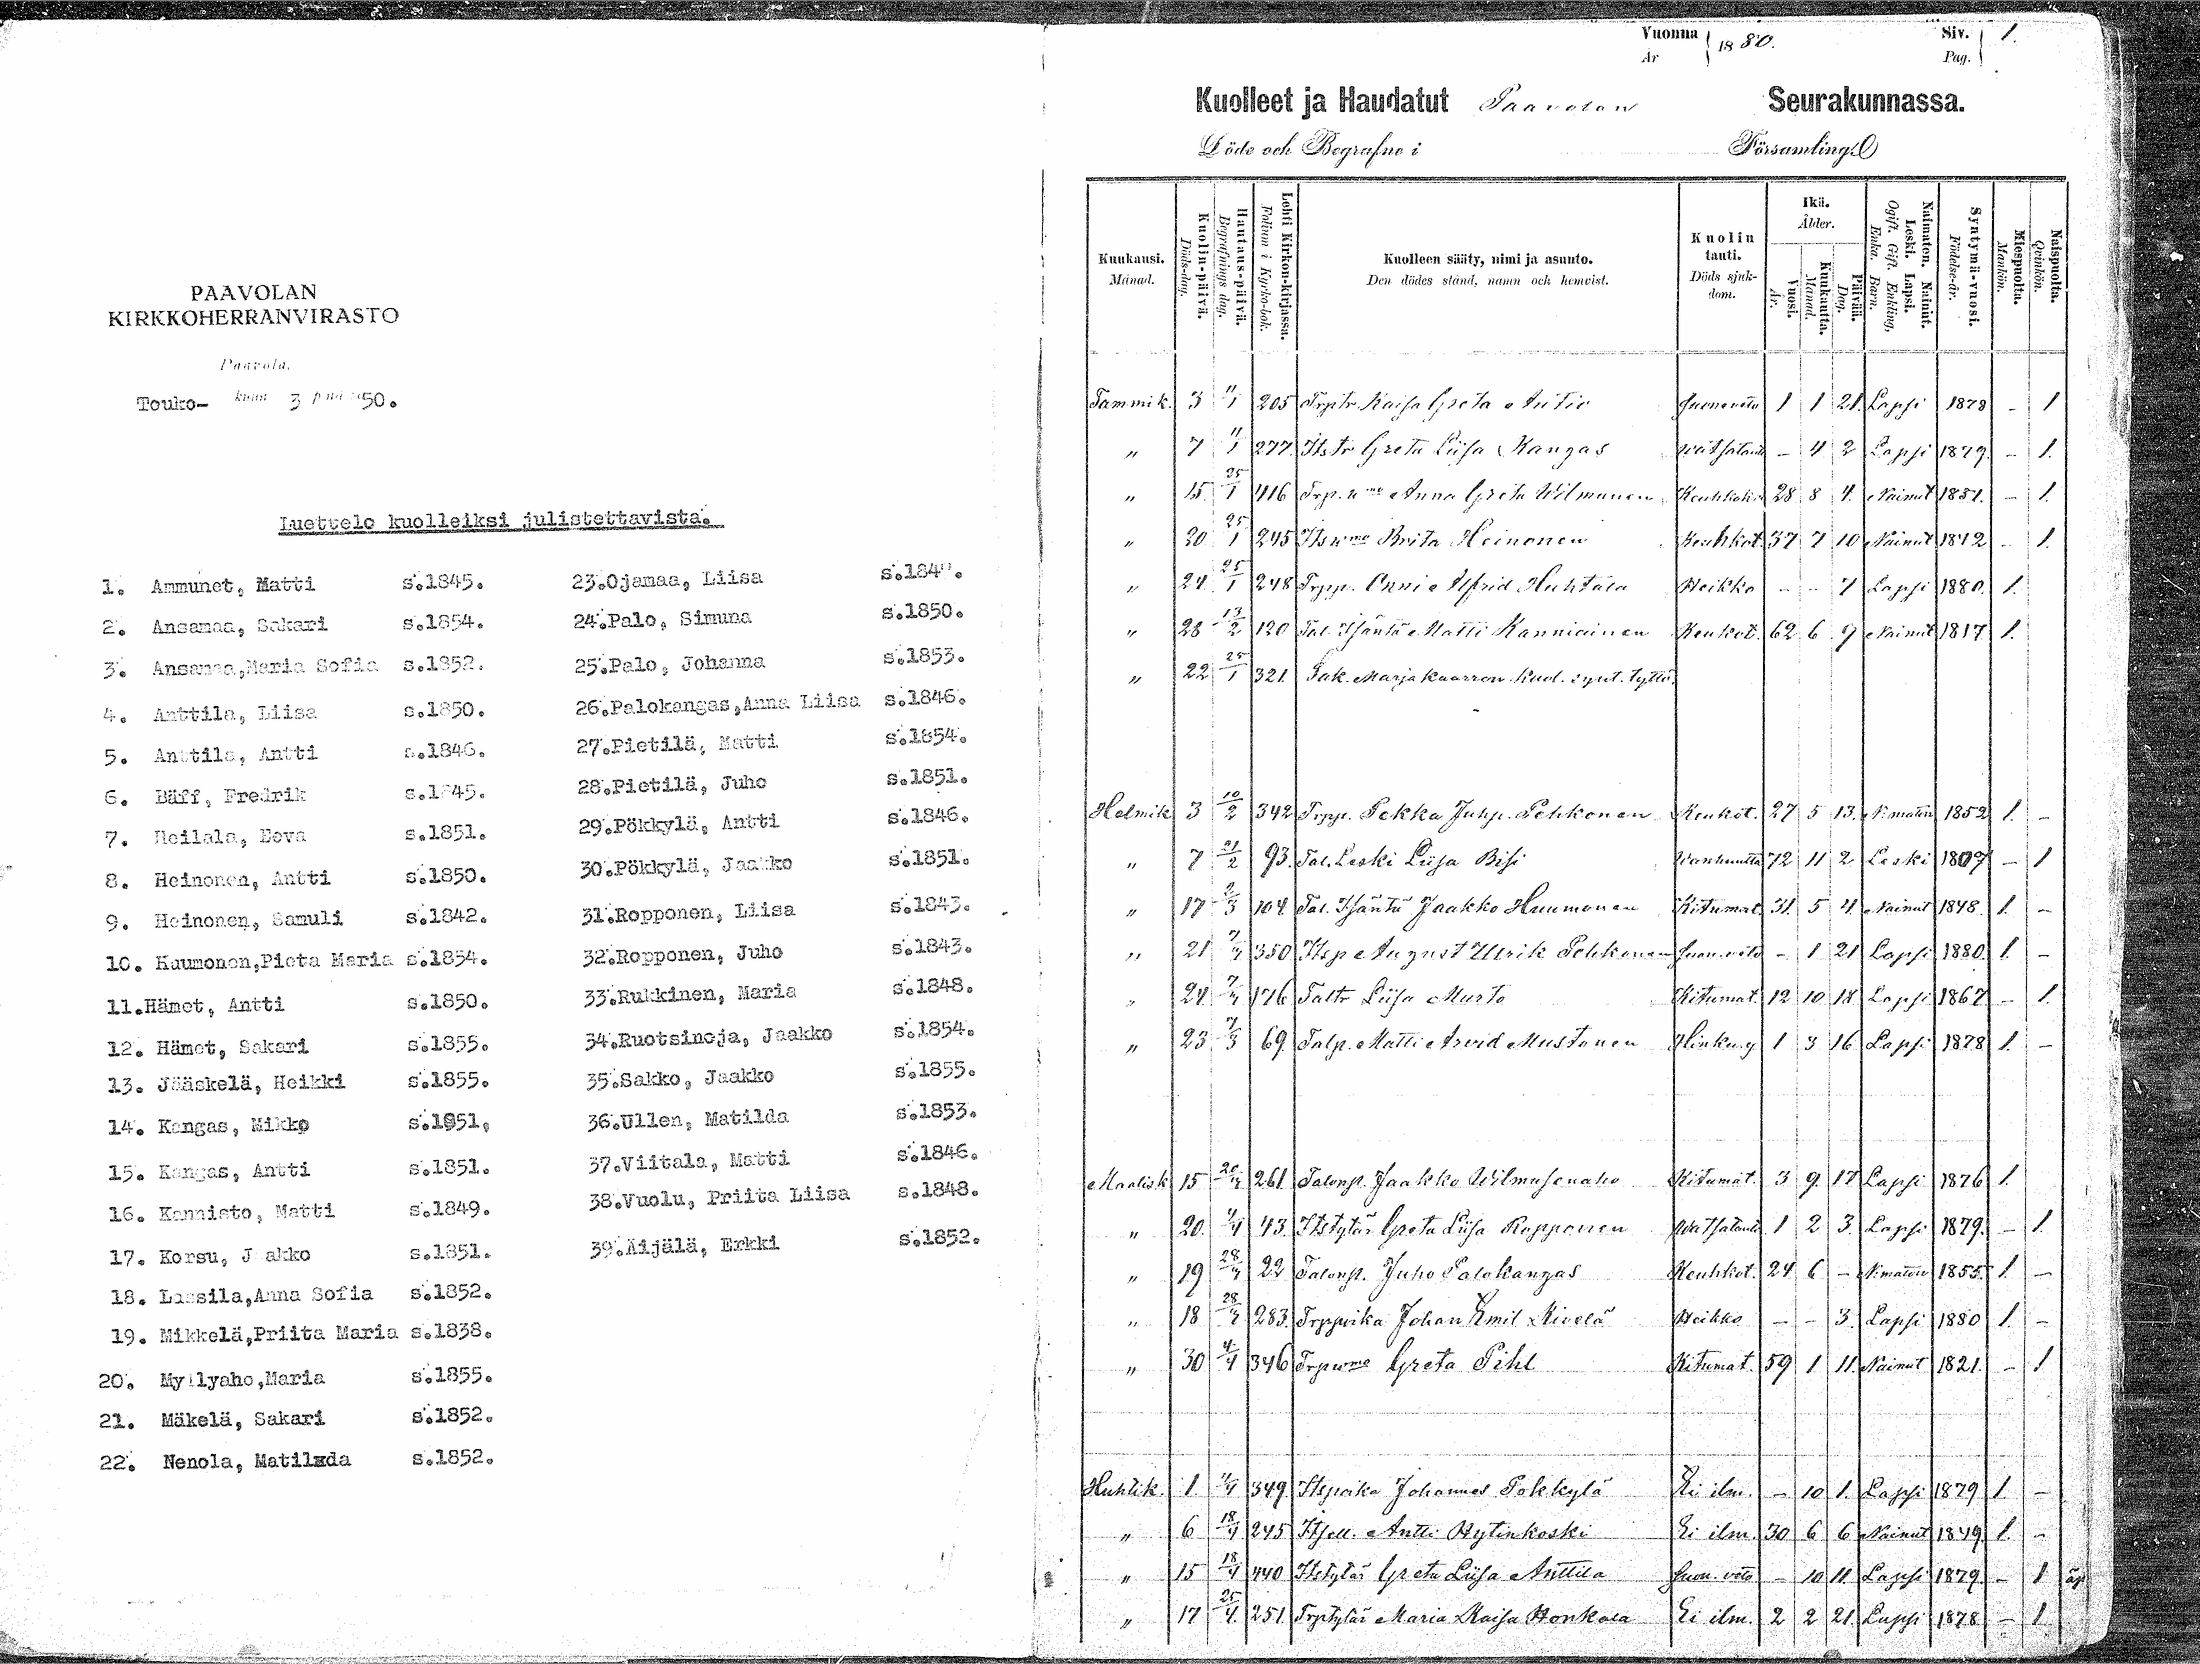 PAAVOLAN
KIRKKOHERRANVIRASTO
Paavola,
Touko- kuun 3 p:nä 1950.
Luettelo kuolleiksi julistettavista.
1. Ammunet, Matti s.1845.
2. Ansamaa, Sakari s.1854.
3. Ansamaa,Maria Sofia s.1852.
4. Anttila, Liisa s.1850.
5. Anttila, Antti s.1846.
6. Bäff, Fredrik s.1845.
7. Heilala, Eeva s.1851.
8. Heinonen, Antti s.1850.
9. Heinonen, Samuli s.1842.
10. Huumonen,Pieta Maria s.1854.
11.Hämet, Antti s.1850.
12. Hämet, Sakari s.1855.
13. Jääskelä, Heikki s.1855.
14. Kangas, Mikko s.1851,
15. Kangas, Antti s.1851.
16. Kannisto, Matti s.1849.
17. Korsu, Jaakko s.1851.
18. Lassila,Anna Sofia s.1852.
19. Mikkelä,Priita Maria s.1838.
20. Myllyaho,Maria s.1855.
21. Mäkelä, Sakari s.1852.
22. Nenola, Matilda s.1852.
23.Ojamaa, Liisa
24.Palo, Simuna s.1850.
25.Palo, Johanna s.1853.
26.Palokangas,Anna Liisa s.1846.
27.Pietilä, Matti s.1854.
28.Pietilä, Juho s.1851.
29.Pökkylä, Antti s.1846.
30.Pökkylä, Jaakko s.1851.
31.Ropponen, Liisa s.1843.
32.Ropponen, Juho s.1843.
33.Rukkinen, Maria s.1848.
34.Ruotsinoja, Jaakko s.1854.
35.Sakko, Jaakko s.1855.
36.Ullen, Matilda s.1853.
37.Viitala, Matti s.1846.
38.Vuolu, Priita Liisa s.1848.
39.Äijälä, Erkki s.1852.
Vuonna 1880. Siv. 1.
År Pag.
Kuolleet ja Haudatut Paavolan Seurakunnassa.
Döde och Begrafne i Församling
Kuukausi. Månad.
Kuolin-päivä. Döds-dag.
Hautaus-päivä. Begrafnings dag.
Lehti Kirkon-kirjassa. Folium i Kyrko-bok.
Kuolleen sääty, nimi ja asunto.
Den dödes stånd, namn och hemvist.
Kuolin tauti. Döds sjukdom.
Ikä. Ålder.
Vuosi. År.
Kuukautta. Månad.
Päivää. Dag.
Naimaton. Nainut. Leski. Lapsi.
Ogift. Gift. Enkling, Enka. Barn.
Syntymä-vuosi. Födelse-år.
Miespuolta. Mankön.
Naispuolta. Qvinkön.
Tammik. 3 11/1 205 Trptr. Kaisa Greta Antio Suonveto 1 1 21. Lapsi 1878 - 1
" 7 11/1 277 Itstr Greta Liisa Kangas Watsataut - 4 2 Lapsi 1879. - 1.
" 15. 25/1 416 Trp. wmo Anna Greta Wilmunen 28 8 4. Nainut 1851. - 1.
" 20 25/1 245 Itswmo Brita Heinonen Keuhkot. 37 7 10 Nainut 1842 - 1.
" 24. 25/1 248 Trpp. Onni Alfrid Huhtala Heikko - - 7 Lapsi 1880. 1.
" 28 13/2 120 Tal. Isäntä Matti Kanniainen Keukot. 62 6 9 Nainut 1817 1.
" 22 25/1 321. Marja Kaarron Kuol. synt. tyttö.
Helmik 3 10/2 342 Trpp. Pekka Juhp. Pehkonen Keukot. 27 5 13. N:maton 1852 1. -
" 7 21/2 93. Tal. Leski Liisa Bisi Wanhuutta 72 11 2 Leski 1807 - 1
" 17 2/3 104. Tal. Isäntä Jaakko Huumonen Kitumat. 31. 5 4. Nainut 1848. 1. -
" 21 7/3 350 Itsp August Ulrik Pehkonen Suon.veto - 1 21 Lapsi 1880. 1. -
" 24 7/3 176 Taltr Liisa Murto Kitumat. 12 10 18 Lapsi 1867 - 1.
" 23 7/3 69. Talp. Matti Arvid Mustonen Hinkuy 1 3 16 Lapsi 1878 1. -
Maalisk 15 20/3 261. Talonp. Jaakko Wilmusenaho Kitumat. 3 9. 17 Lapsi 1876 1.
" 20. 4/4 43. Itstytär Greta Liisa Ropponen Watsataut. 1 2 3. Lapsi 1879. - 1.
" 19 28/3 22 Talonp. Juho Palokangas Keuhkot. 24 6 - N:maton 1855 1. -
" 18 28/3 283. Trppoika Johan Emil Kivelä Heikko - - 3. Lapsi 1880 1. -
" 30 4/4 346 Trpwmo Greta Pihl Kitumat. 59 1 11. Nainut 1821. - 1
Huhtik. 1. 11/4 349 Itspoika Johannes Pokkylä Ei ilm. - 10 1. Lapsi 1879 1. -
" 6 18/4 245 Itsell. Antti Hytinkoski Ei ilm. 30 6 6 Nainut 1849. 1. -
" 15 18/4 440 Itstytär Greta Liisa Anttila Suon. veto - 10 11. Lapsi 1879. - 1 äp
" 17 25/4 251. Trptytär Maria Kaisa Honkala Ei ilm. 2 2 21. Lapsi 1878 - 1.